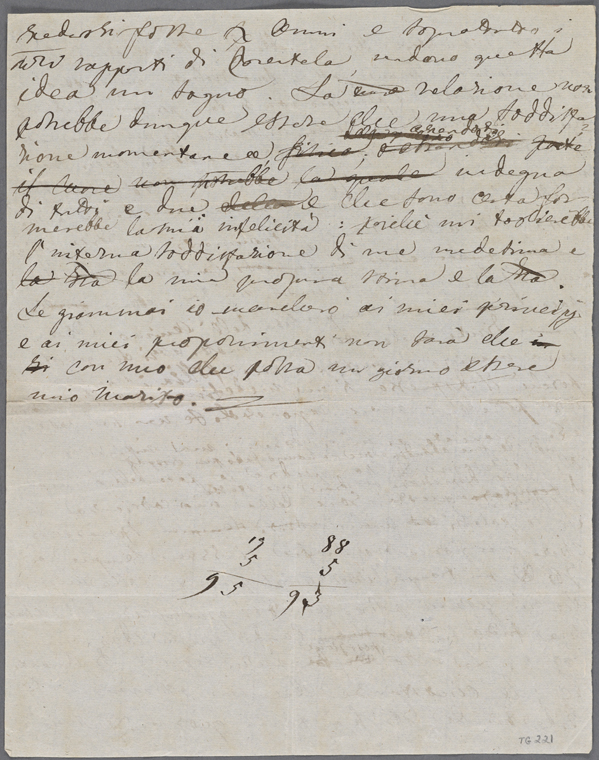 e
rapporti di Parentela, rendono questa
idea un sogno. La mia relazione non
potrebbe dunque essere che una soddisfa-
zione momentanea, fisica,
il cuore non potrebbe la quale indegna
di tutti e due e che sono certa for
merebbe la mia infelicità: poichè mi toglierebbe
l'interna soddisfazione di me medesima e
la sua la mia propria stima e la sua.
Se giammai io mancherò ai miei principj
e ai miei proponimenti non sarà che
si con uno che possa un giorno essere
mio marito.
19 88
5 5
95 93
TG 221